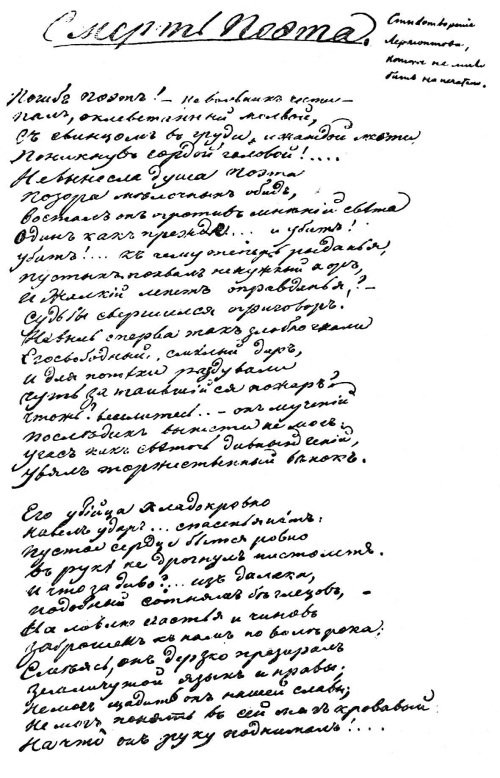 Смерть Поэта.
Стихотвореніе
Лермонтова,
которое не
быть напечатано.
Погибъ Поэтъ! – невольникъ чести –
Палъ, оклеветанный молвой,
Съ свинцомъ въ груди, и жаждой мести
Поникнувъ гордой головой!....
Не вынесла душа Поэта
Позора мѣлочныхъ обидъ,
Возсталъ онъ противъ мнѣній свѣта
Одинъ какъ прежде... и убитъ!
Убитъ!... къ чему теперь рыданья,
Пустыхъ похвалъ ненужный хоръ,
И жалкій лепетъ оправданья? –
Судьбы свершился приговоръ.
Не вы ль сперва такъ злобно гнали
Его свободный, смѣлый даръ,
И для потѣхи раздували
Чуть затаившійся пожаръ?
Что жъ? веселитесь... – онъ мученій
Послѣднихъ вынести не могъ:
Угасъ какъ свѣточь дивный геній,
Увялъ торжественный вѣнокъ.
Его убійца хладокровно
Навелъ ударъ... спасенья нѣтъ:
Пустое сердце бьется ровно
Въ рукѣ не дрогнулъ пистолетъ.
И что за диво?... изъ далека,
Подобный сотнямъ бѣглецовъ, –
На ловлю счастья и чиновъ
Заброшенъ къ намъ по волѣ рока;
Смѣясь, онъ дерзко презиралъ
Земли чужой языкъ и нравы;
Не могъ щадить онъ нашей славы;
Не могъ понять въ сей мигъ кровавый
На что онъ руку поднималъ!....